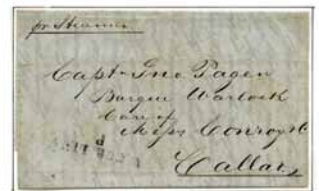 pr Steamer
Capt. Jno Pagen
Barque Warlock
Care of
Messrs Conroy &
Callao